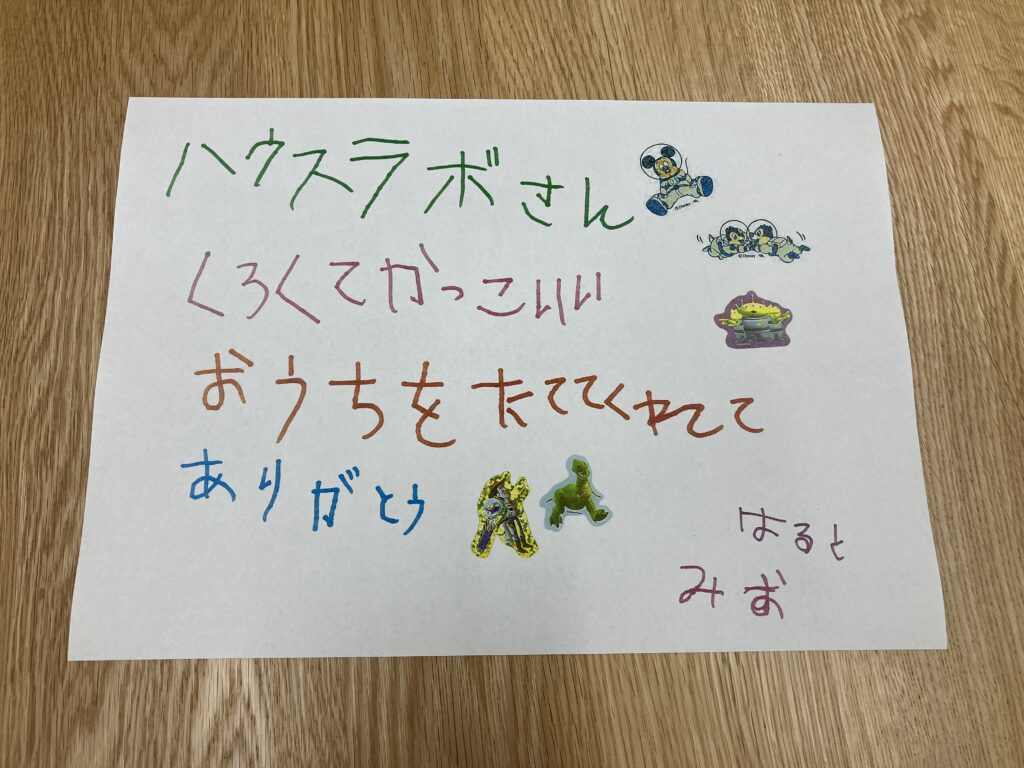 ハウスラボさん
くろくてかっこいい
おうちをたててくれてて
ありがとう
はると
みお
© Disney
© Disney